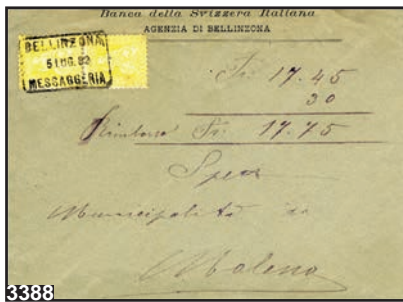 Banca della Svizzera Italiana
AGENZIA DI BELLINZONA
BELLINZONA
5 LUG. 82
MESSAGGERIA
Fr. 17.45
30
Rimborso Fr. 17.75
Municipalità di
3388